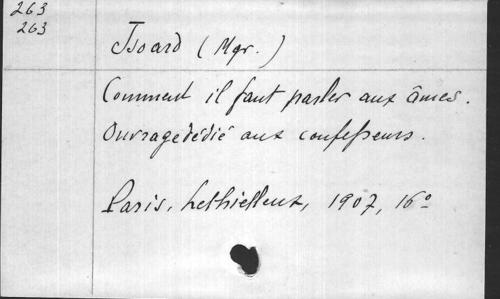 263
263
Isoard (Mgr.)
Comment il faut parler aux âmes.
Ouvrage dédié aux confesseurs.
Paris, Lethielleux, 1907, 16º